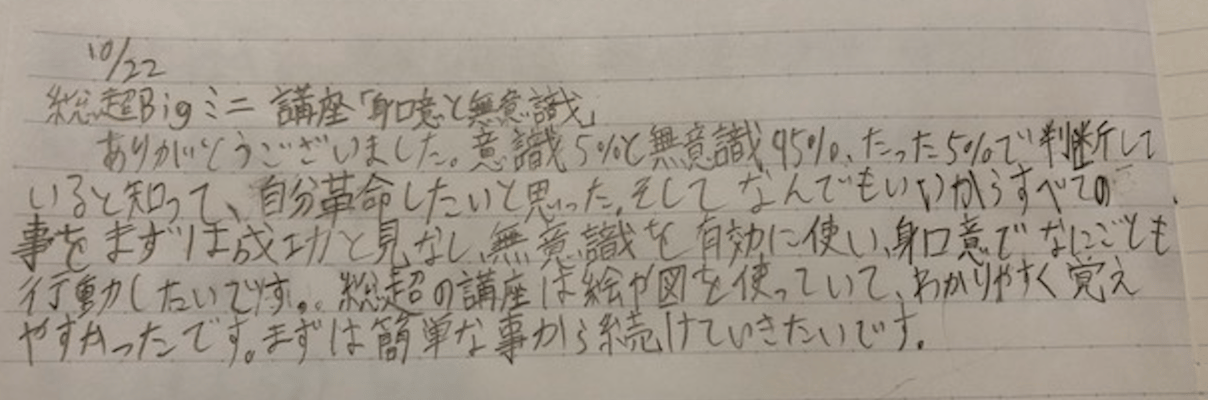 10/22
総超Bigミニ 講座「身口意と無意識」
ありがとうございました。意識5%と無意識95%、たった5%で判断して
いると知って、自分革命したいと思った。そして なんでもいいからすべての
事をまずは成功と見なし、無意識を有効に使い、身口意でなにごとも
行動したいです。総超の講座は絵や図を使っていて、わかりやすく覚え
やすかったです。まずは簡単な事から続けていきたいです。